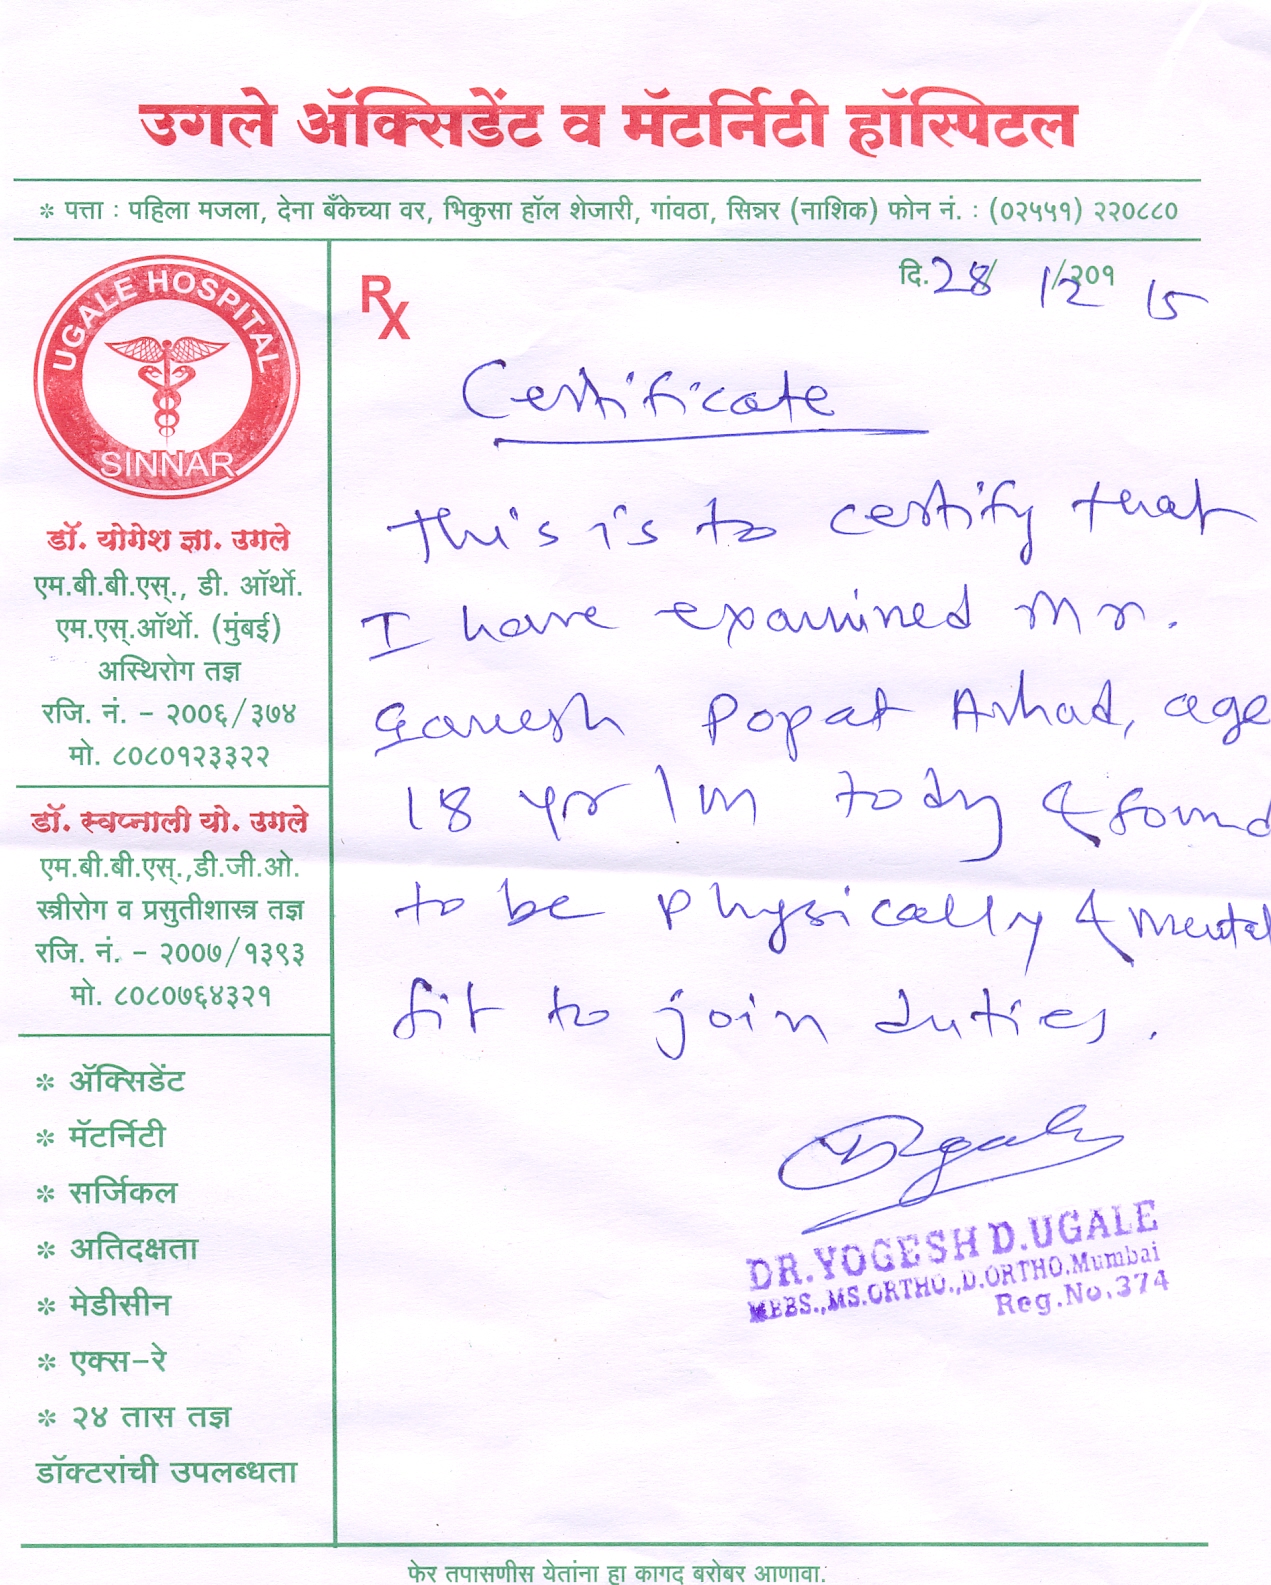 उगले ॲक्सिडेंट व मॅटर्निटी हॉस्पिटल
* पत्ता : पहिला मजला, देना बँकेच्या वर, भिकुसा हॉल शेजारी, गांवठा, सिन्नर (नाशिक) फोन नं. : (०२५५१) २२०८८०
UGALE HOSPITAL
SINNAR
डॉ. योगेश ज्ञा. उगले
एम.बी.बी.एस्., डी. ऑर्थो.
एम.एस्.ऑर्थो. (मुंबई)
अस्थिरोग तज्ञ
रजि. नं. - २००६/३७४
मो. ८०८०१२३३२२
डॉ. स्वप्नाली यो. उगले
एम.बी.बी.एस्.,डी.जी.ओ.
स्त्रीरोग व प्रसुतीशास्त्र तज्ञ
रजि. नं. - २००७/१३९३
मो. ८०८०७६४३२१
* ॲक्सिडेंट
* मॅटर्निटी
* सर्जिकल
* अतिदक्षता
* मेडीसीन
* एक्स-रे
* २४ तास तज्ञ
डॉक्टरांची उपलब्धता
Rx
दि. 28/12/२०१ 15
Certificate
This is to certify that
I have examined Mr.
Ganesh Popat Avhad, age
18 yr / m today & found
to be physically & mental
fit to join duties.
Ugale
DR.YOGESH D.UGALE
MBBS.,MS.ORTHO.,D.ORTHO.Mumbai
Reg.No.374
फेर तपासणीस येतांना हा कागद बरोबर आणावा.